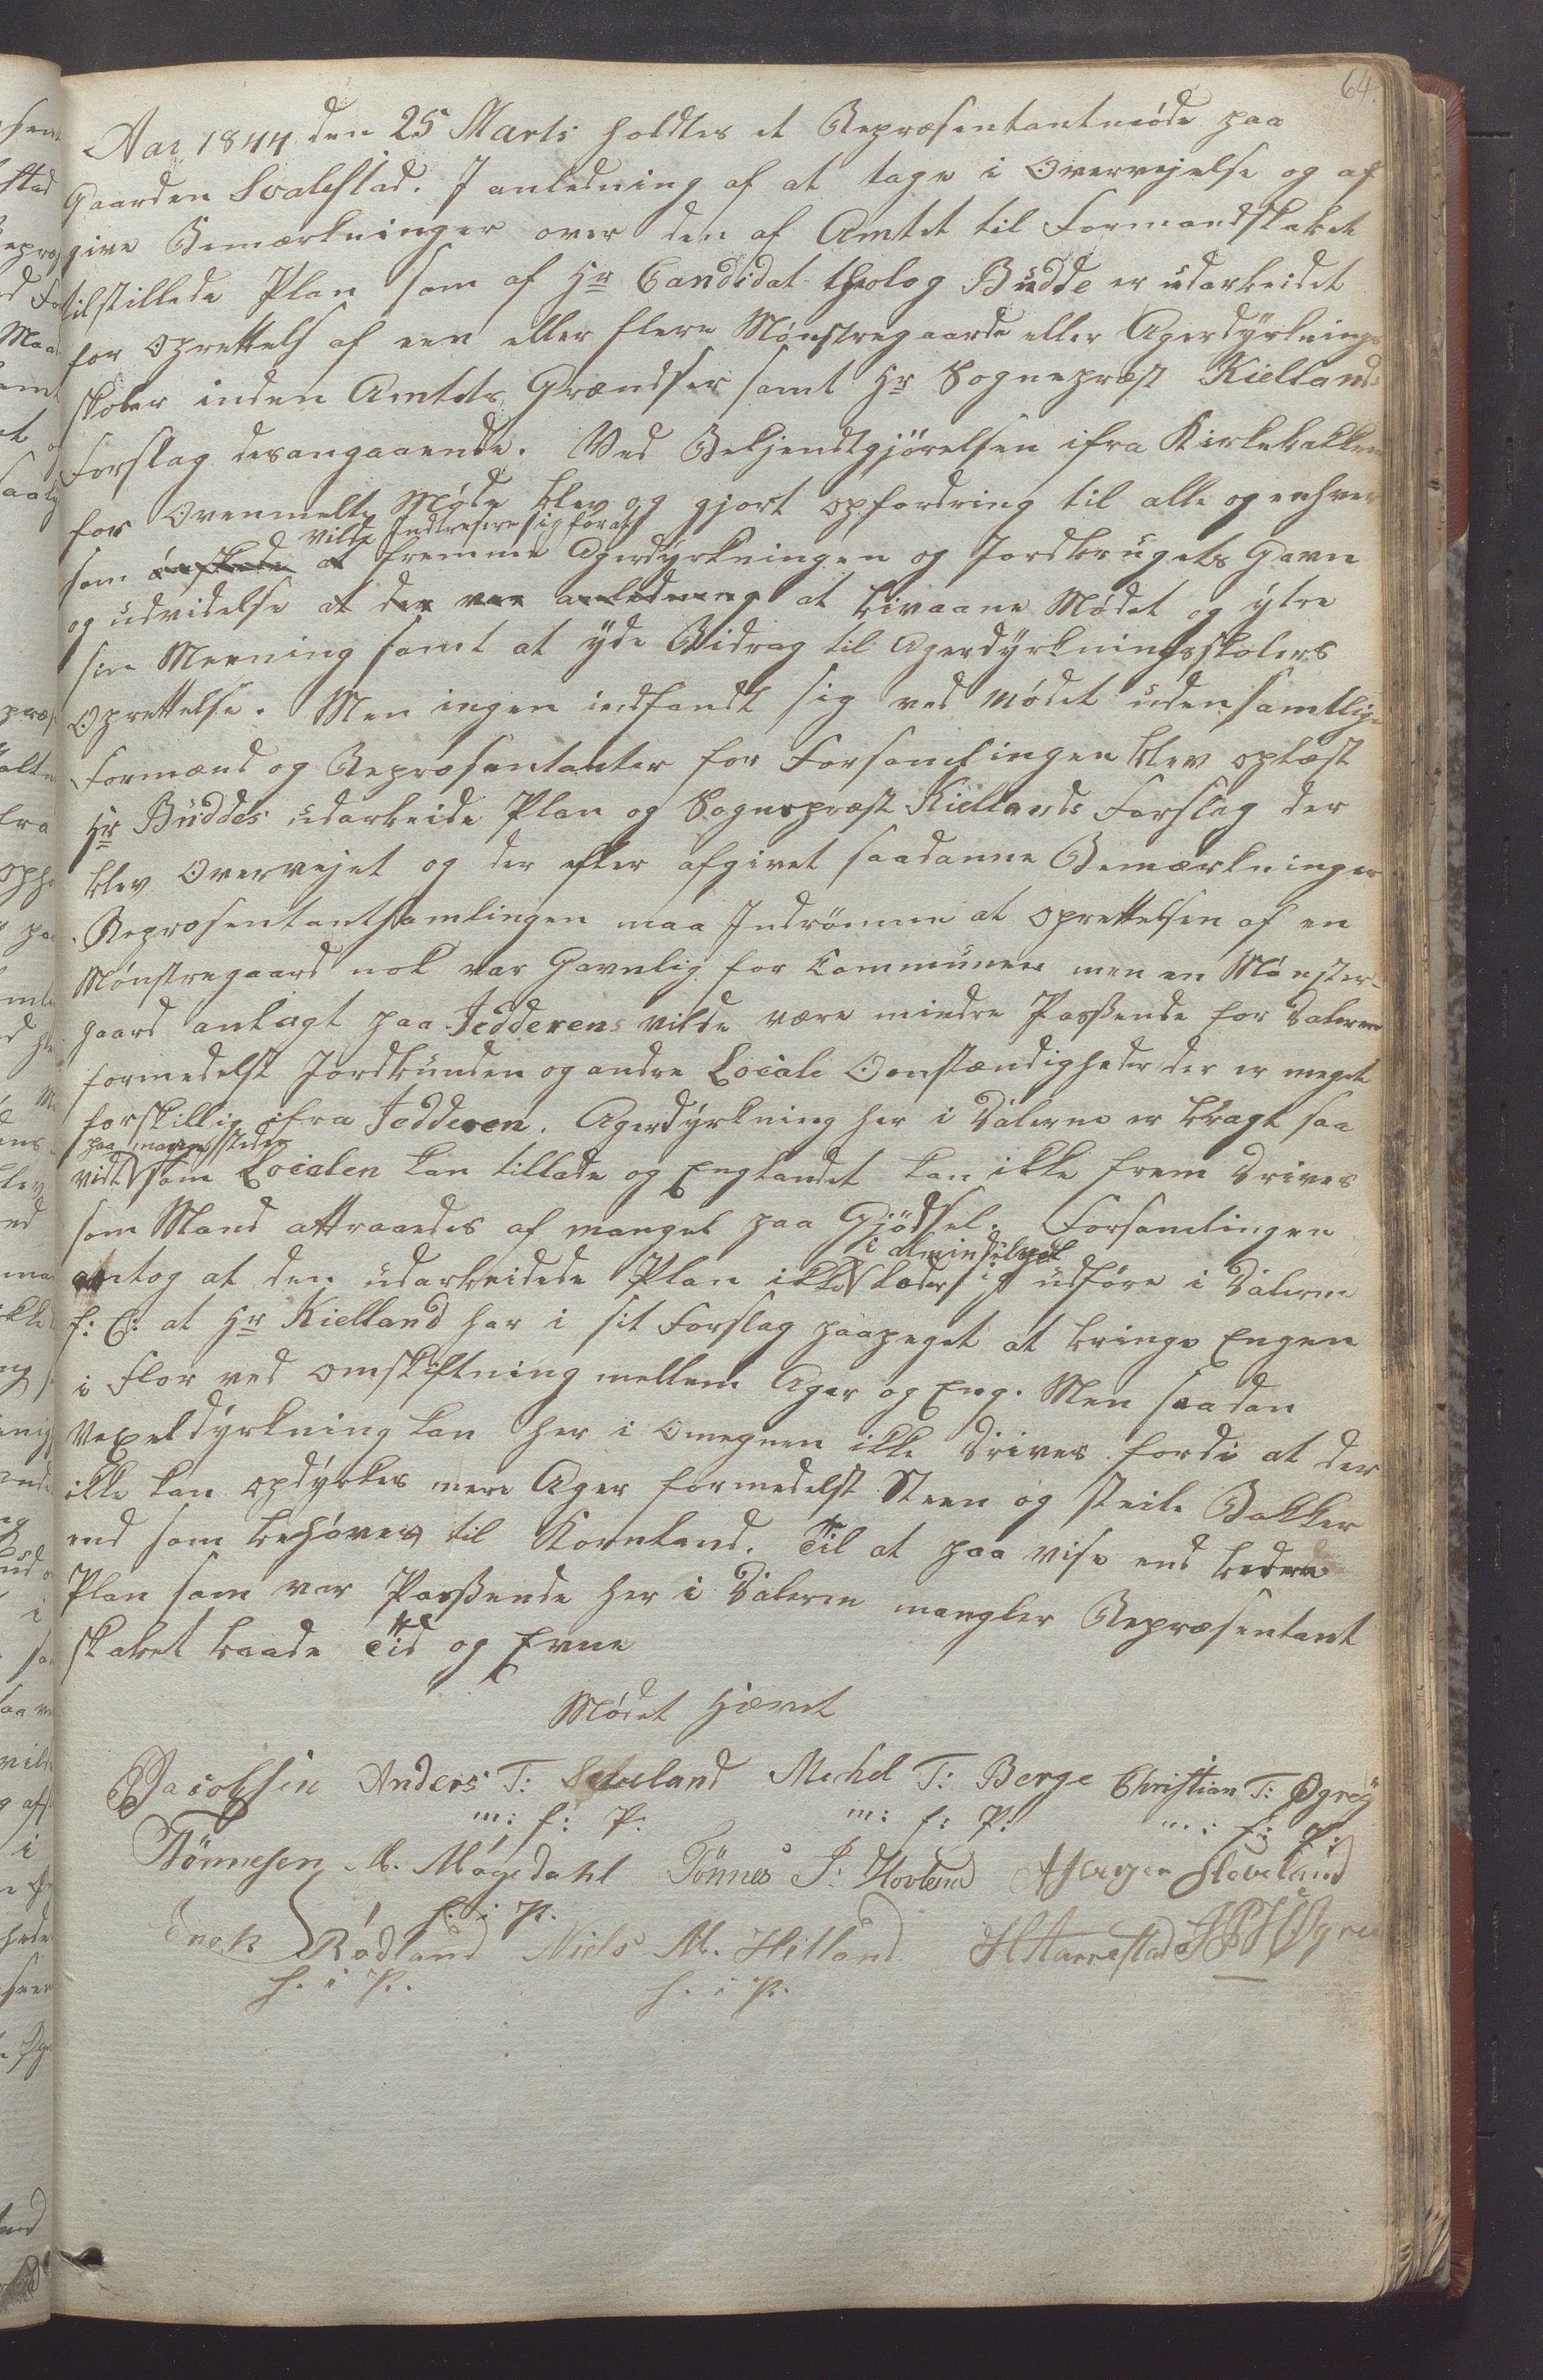 64.
Aar 1844 den 25 Marts holdtes et Repræsentantmöde paa
Gaarden Svalestad. I anledning af at tage i Overvejelse og af
give Bemærkninger over den af Amtet til Formandskabet
tilstillede Plan som af Hr Candidat theolog Budde er udarbeidet
for Oprettels af een eller flere Mönstregaarde eller Agerdÿrknings
skoler inden Amtets Grændser samt Hr Sognepræst Kiellands
Forslag desangaaende. Ved Bekjendtgjörelsen ifra Kirkebakken
for Ovenmelte Möde blev og gjort opfordring til alle og enhver
vilde Indtresere sig for at
som önskede at fremme Agerdÿrkningen og Jordbrugets Gavn
og udvidelse at der var anledning at bivaane Mödet og ÿtre
sin Meening samt at ÿde Bidrag til Agerdÿrkningsskolers
Oprettelse. Men ingen indfandt sig ved Mödet uden samtlige
Formænd og Repræsentanter for Forsamlingen blev oplæst
Hr Buddes udarbeide Plan og Sognepræst Kiellands Forslag der
blev Overvejet og der efter afgivet saadanne Bemærkninger
Repræsentantsamlingen maa Indrömme at oprettelsen af en
Mönstregaard nok var Gavnlig for Communen men en Mönster-
gaard anlagt paa Jedderens vilde være mindre Passende for Dalerne
formedelst Jordbunden og andre Locale Omstændigheder der er meget
forskillig ifra Jedderen. Agerdÿrkning her i Dalerne er bragt saa
paa mange steder
vidt som Localen kan tillade og Englandet kan ikke frem drives
som Mand attraaedes af mangel paa Gjödsel. Forsamlingen
i almindelighed
antog at den udarbeidede Plan ikke lader sig udföre i Dalerne
f: E: at Hr Kielland har i sit Forslag paapeget at bringe Engen
i Flor ved omskiftning mellem Ager og Eng. Men saadan
Vexeldÿrkning kan her i Omegnen ikke drives fordi at der
ikke kan opdÿrkes mere Ager formedelst Steen og steile Bakker
end som behöves til Kornland. Til at paa vise end bedre
Plan som var Passende her i Dalerne mangler Repræsentant
skabet baade Tid og Evne
Mödet Hævet
Jacobsen Anders T: Sleveland Michel T: Berge Christian T: Øgreÿ
m: f: P: m: f: P: m: f: P:
Tönnesen M. Mögedahl Tönnes J: Hovland Aslagsen Sleveland
h. i P.
Enok Rödland Niels M. Hetland HHarrestad Øgrei
h. i P. h. i P.